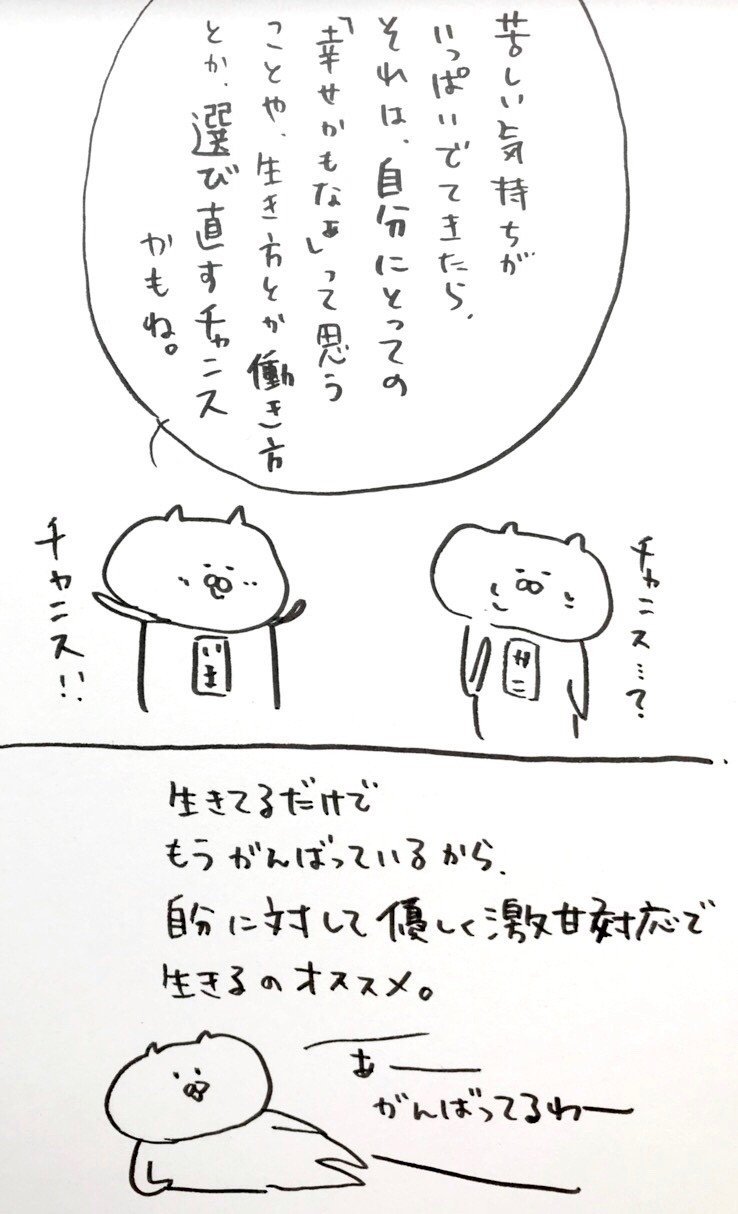 苦しい気持ちが
いっぱいでてきたら、
それは、自分にとっての
「幸せかもなぁ」って思う
ことや、生き方とか働き方
とか、選び直すチャンス
かもね。
チャンス…?
かこ
チャンス!!
いま
生きてるだけで
もうがんばっているから、
自分に対して優しく激甘対応で
生きるのオススメ。
あー
がんばってるわー